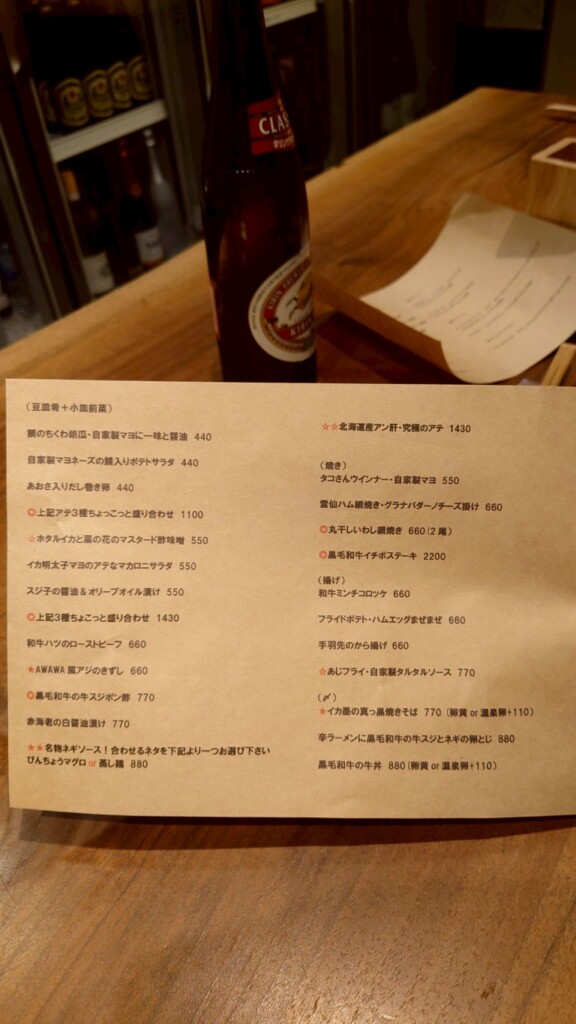 CLAS
KIRIN
（豆皿肴＋小皿前菜）
鯛のちくわ胡瓜・自家製マヨに一味と醤油 440
自家製マヨネーズの燻入りポテトサラダ 440
あおさ入りだし巻き卵 440
◎上記アテ3種ちょっこっと盛り合わせ 1100
☆ホタルイカと菜の花のマスタード酢味噌 550
イカ明太子マヨのアテなマカロニサラダ 550
スジ子の醤油＆オリーブオイル漬け 550
◎上記3種ちょこっと盛り合わせ 1430
和牛ハツのローストビーフ 660
★AWAWA風アジのきずし 660
◎黒毛和牛の牛スジポン酢 770
赤海老の白醤油漬け 770
★★名物ネギソース！合わせるネタを下記より一つお選び下さい
びんちょうマグロ or 蒸し鶏 880
☆☆北海道産アン肝・究極のアテ 1430
（焼き）
タコさんウインナー・自家製マヨ 550
雲仙ハム網焼き・グラナパダーノチーズ掛け 660
◎丸干しいわし網焼き 660（2尾）
◎黒毛和牛イチボステーキ 2200
（揚げ）
和牛ミンチコロッケ 660
フライドポテト・ハムエッグまぜまぜ 660
手羽先のから揚げ 660
☆あじフライ・自家製タルタルソース 770
（〆）
★イカ墨の真っ黒焼きそば 770（卵黄 or 温泉卵+110）
辛ラーメンに黒毛和牛の牛スジとネギの卵とじ 880
黒毛和牛の牛丼 880（卵黄 or 温泉卵+110）